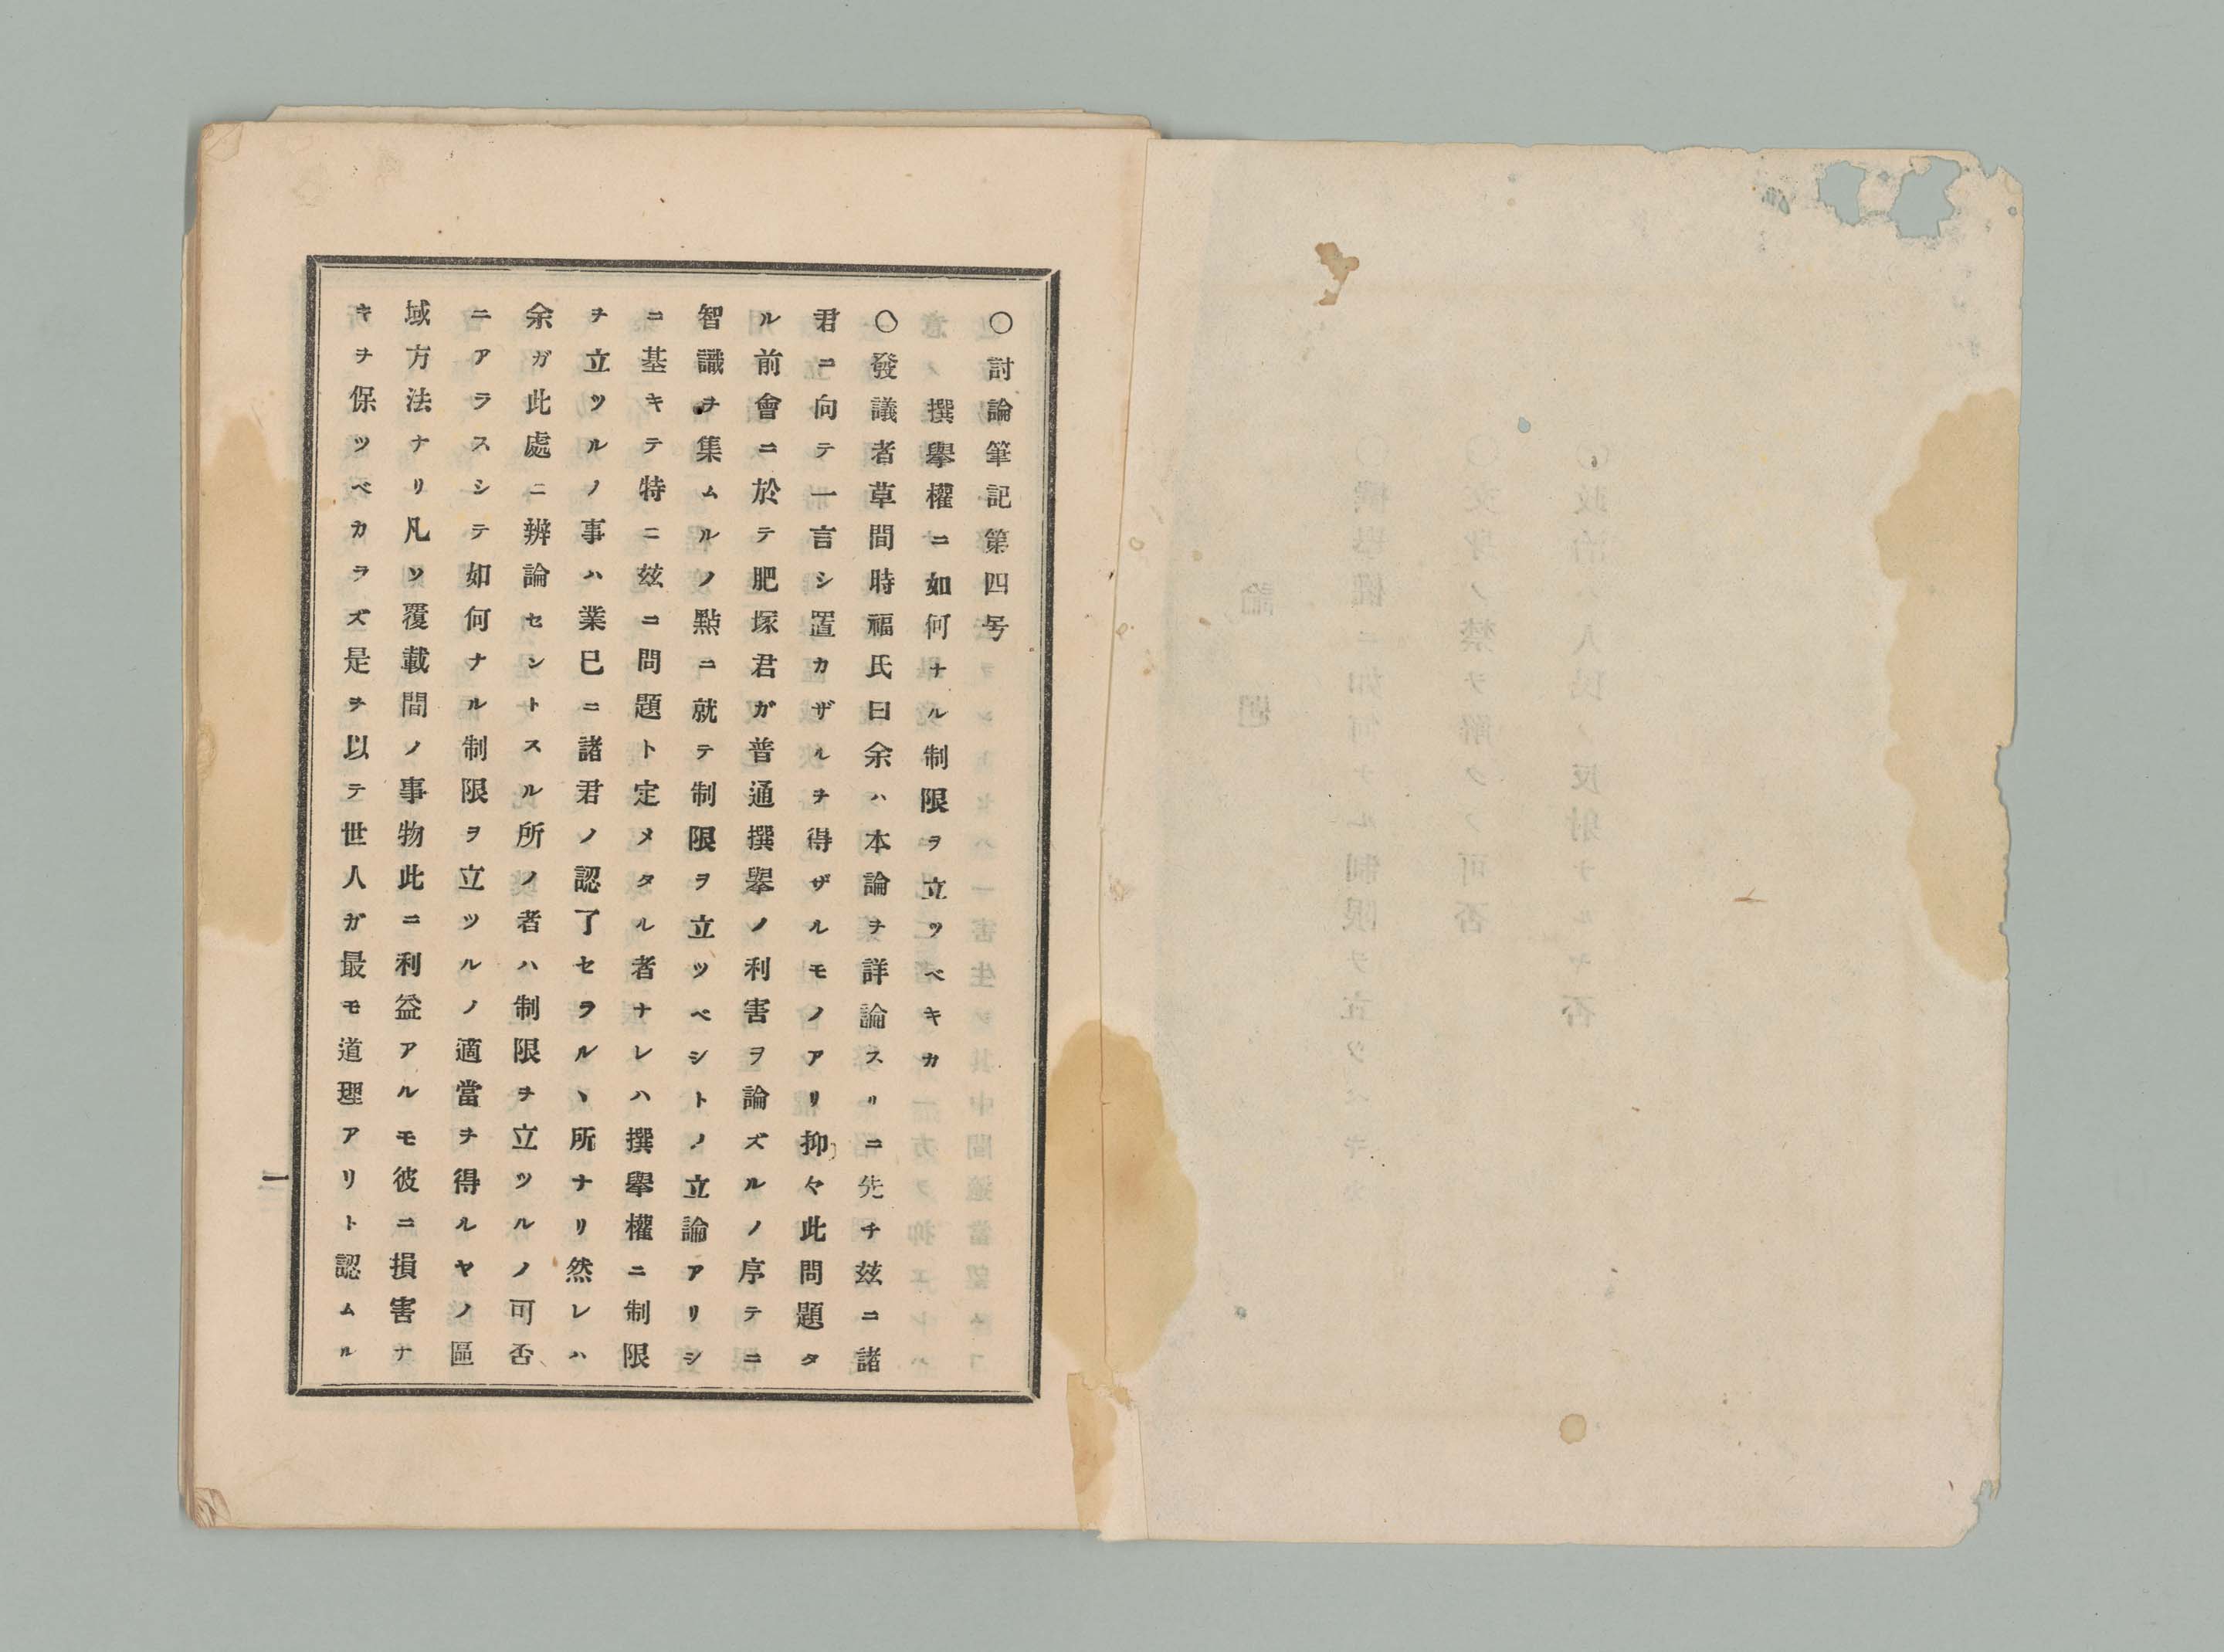 〇討論筆記第四号
撰擧權ニ如何ナル制限ヲ立ツベキカ
〇發議者草間時福氏曰余ハ本論ヲ詳論スリニ先チ玆ニ諸
君ニ向テ一言シ置カザルヲ得ザルモノアリ抑々此問題タ
ル前會ニ於テ肥塚君ガ普通撰擧ノ利害ヲ論ズルノ序テニ
智識ヲ集ムルノ點ニ就テ制限ヲ立ツベシトノ立論アリシ
ニ基キテ特ニ玆ニ問題ト定メタル者ナレハ撰擧權ニ制限
ヲ立ツルノ事ハ業已ニ諸君ノ認了セラルヽ所ナリ然レハ
余ガ此處ニ辨論セントスル所ノ者ハ制限ヲ立ツルノ可否
ニアラスシテ如何ナル制限ヲ立ツルノ適當ヲ得ルヤノ區
域方法ナリ凡ソ覆載間ノ事物此ニ利益アルモ彼ニ損害ナ
キヲ保ツベカラズ是ヲ以テ世人ガ最モ道理アリト認ムル
一